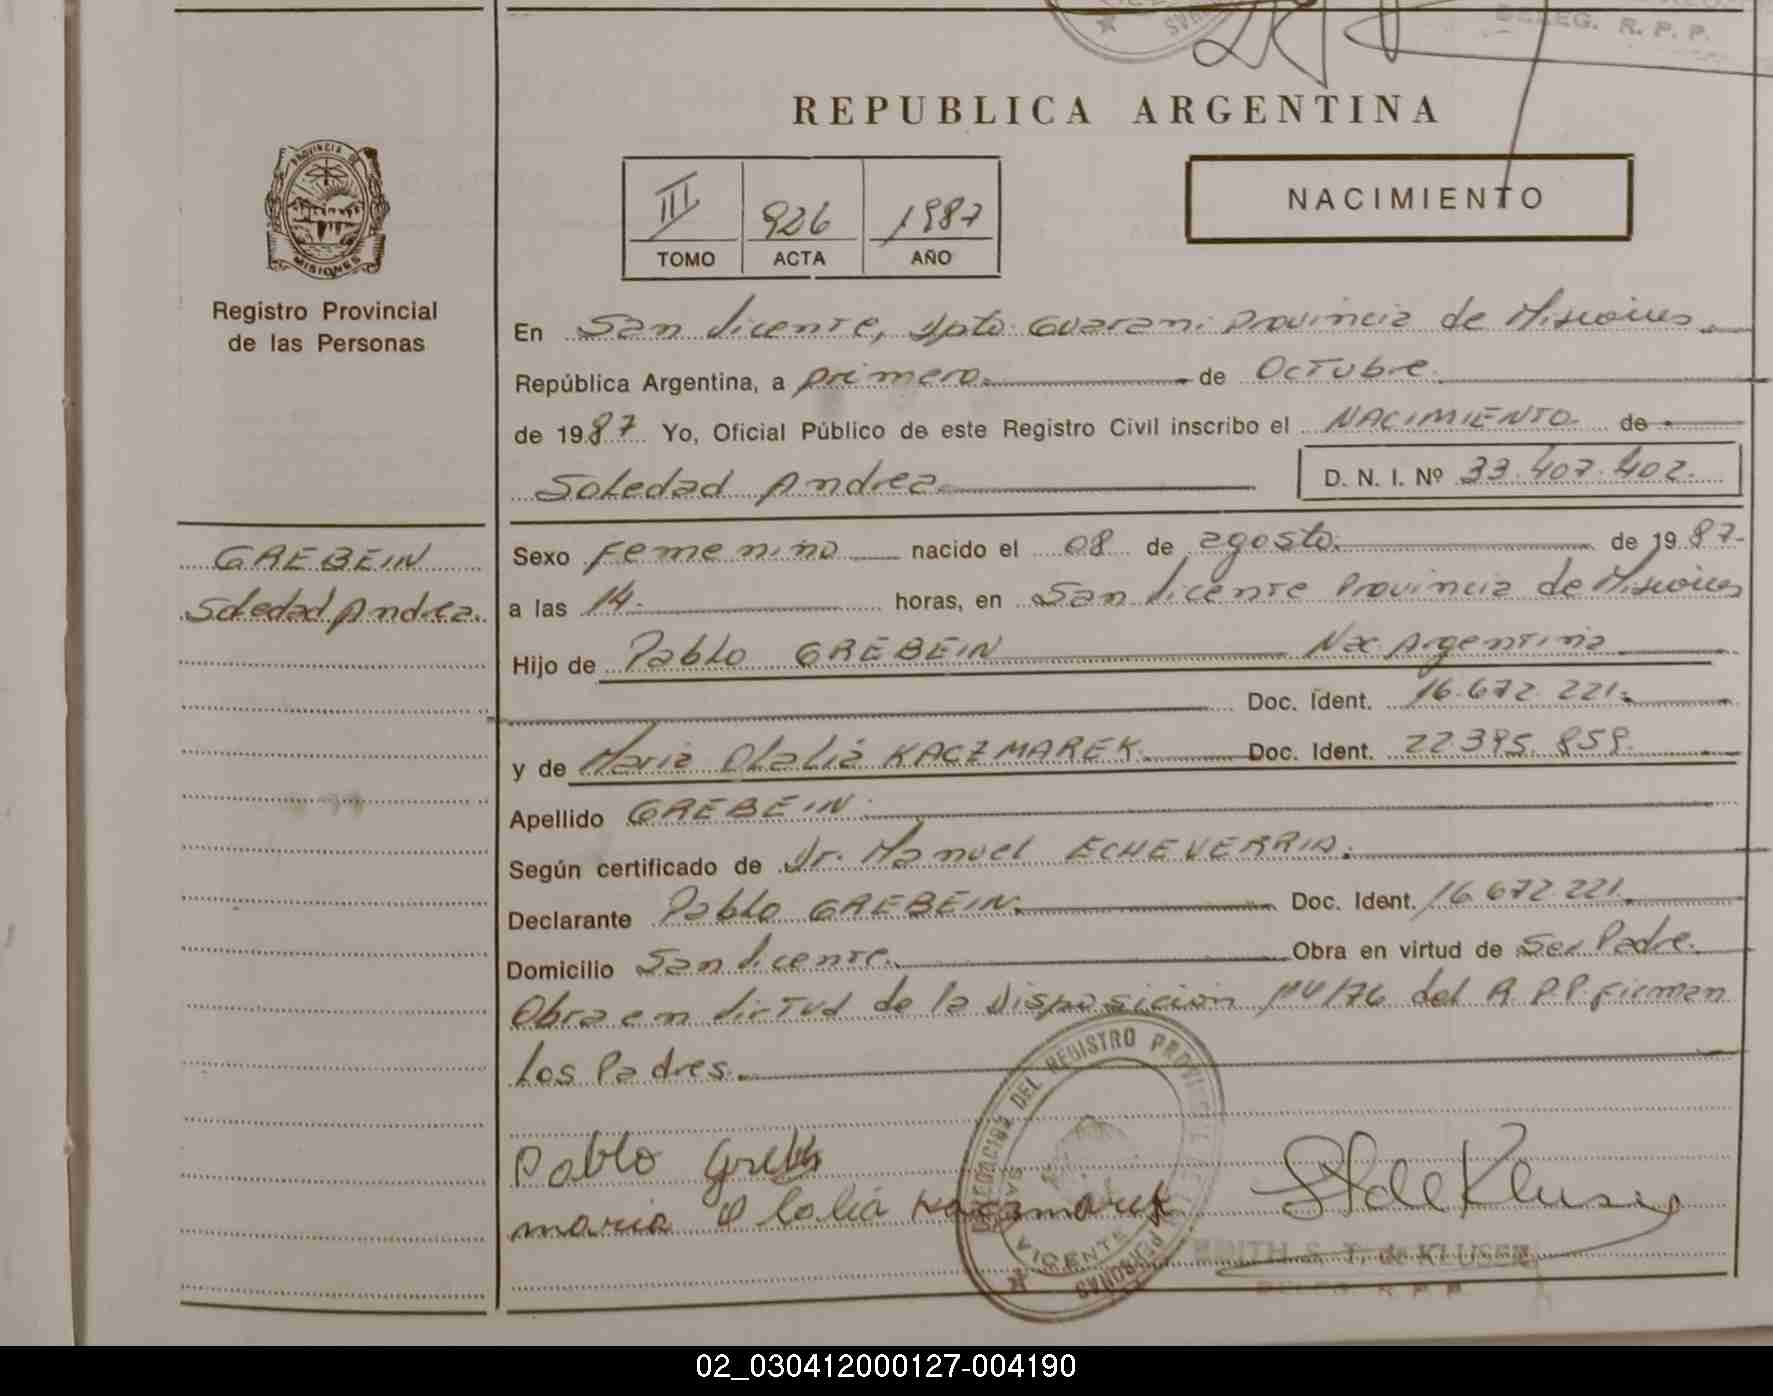 DELEG. R. P. P.
REPUBLICA ARGENTINA
PROVINCIA DE
MISIONES
Registro Provincial
de las Personas
III 926 1987
TOMO ACTA AÑO
NACIMIENTO
En San Vicente, Dpto. Guarani Provincia de Misiones
República Argentina, a primero de Octubre
de 1987 Yo, Oficial Público de este Registro Civil inscribo el NACIMIENTO de
Soledad Andrea D. N. I. Nº 33.407.402
GREBEIN
Soledad Andrea.
Sexo Femenino nacido el 08 de agosto de 1987
a las 14 horas, en San Vicente Provincia de Misiones
Hijo de Pablo GREBEIN Nac Argentina
Doc. Ident. 16.672.221
y de Maria Olalia KACZMAREK Doc. Ident. 22.395.859
Apellido GREBEIN
Según certificado de Dr. Manuel ECHEVERRIA.
Declarante Pablo GREBEIN. Doc. Ident. 16.672.221
Domicilio San Vicente. Obra en virtud de Ser Padre.
Obra en Virtud de la Disposicion 114/76 del R.P.P. Firman
Los Padres.
Pablo Grebein
maria Olalia Kaczmarek
DELEGACION DEL REGISTRO PROVINCIAL DE LAS PERSONAS
SAN VICENTE
EDITH S. T. de KLUSEN
DELEG. R. P. P.
02_030412000127-004190